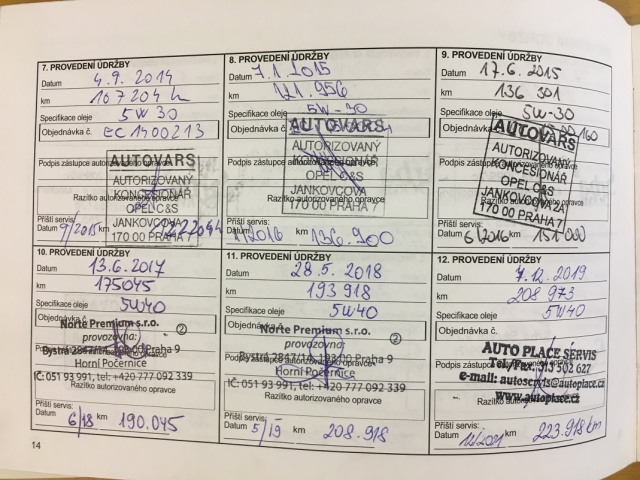 7. PROVEDENÍ ÚDRŽBY
Datum 4.9.2014
km 107204 km
Specifikace oleje 5W30
Objednávka č. EC1400213
AUTOVARS
Podpis zástupce autorizovaného opravce
AUTORIZOVANÝ
KONCESIONÁŘ
Razítko autorizovaného opravce
OPEL C&S
JANKOVCOVA
170 00 PRAHA 7
Příští servis:
Datum 9/2015 km
8. PROVEDENÍ ÚDRŽBY
Datum 7.1.2015
km 121.956
Specifikace oleje 5W-30
Objednávka č.
AUTOVARS
Podpis zástupce autorizovaného opravce
AUTORIZOVANÝ
KONCESIONÁŘ
OPEL C&S
Razítko autorizovaného opravce
JANKOVCOVA
170 00 PRAHA 7
Příští servis:
Datum 1/2016 km 136.900
9. PROVEDENÍ ÚDRŽBY
Datum 17.6.2015
km 136 301
Specifikace oleje 5W-30
Objednávka č.
AUTOVARS
Podpis zástupce autorizovaného opravce
AUTORIZOVANÝ
KONCESIONÁŘ
OPEL C&S
JANKOVCOVA
Razítko autorizovaného opravce
170 00 PRAHA 7
Příští servis:
Datum 6/2016 km 151 000
10. PROVEDENÍ ÚDRŽBY
Datum 13.6.2017
km 175045
Specifikace oleje 5W40
Objednávka č.
Norte Premium s.r.o.
provozovna: 2
Bystrá 2847/14, 193 00 Praha 9
Horní Počernice
IČ: 051 93 991, tel: +420 777 092 339
Razítko autorizovaného opravce
Příští servis:
Datum 6/18 km 190.045
11. PROVEDENÍ ÚDRŽBY
Datum 28.5.2018
km 193 918
Specifikace oleje 5W40
Objednávka č.
Norte Premium s.r.o.
provozovna: 2
Bystrá 2847/14, 193 00 Praha 9
Horní Počernice
IČ: 051 93 991, tel: +420 777 092 339
Razítko autorizovaného opravce
Příští servis:
Datum 5/19 km 208.918
12. PROVEDENÍ ÚDRŽBY
Datum 7.12.2019
km 208 973
Specifikace oleje 5W40
Objednávka č.
AUTO PLACE SERVIS
Tel./Fax: 313 502 627
e-mail: autoservis@autoplace.cz
www.autoplace.cz
Příští servis:
Datum 12/2021 km 223.918 km
14